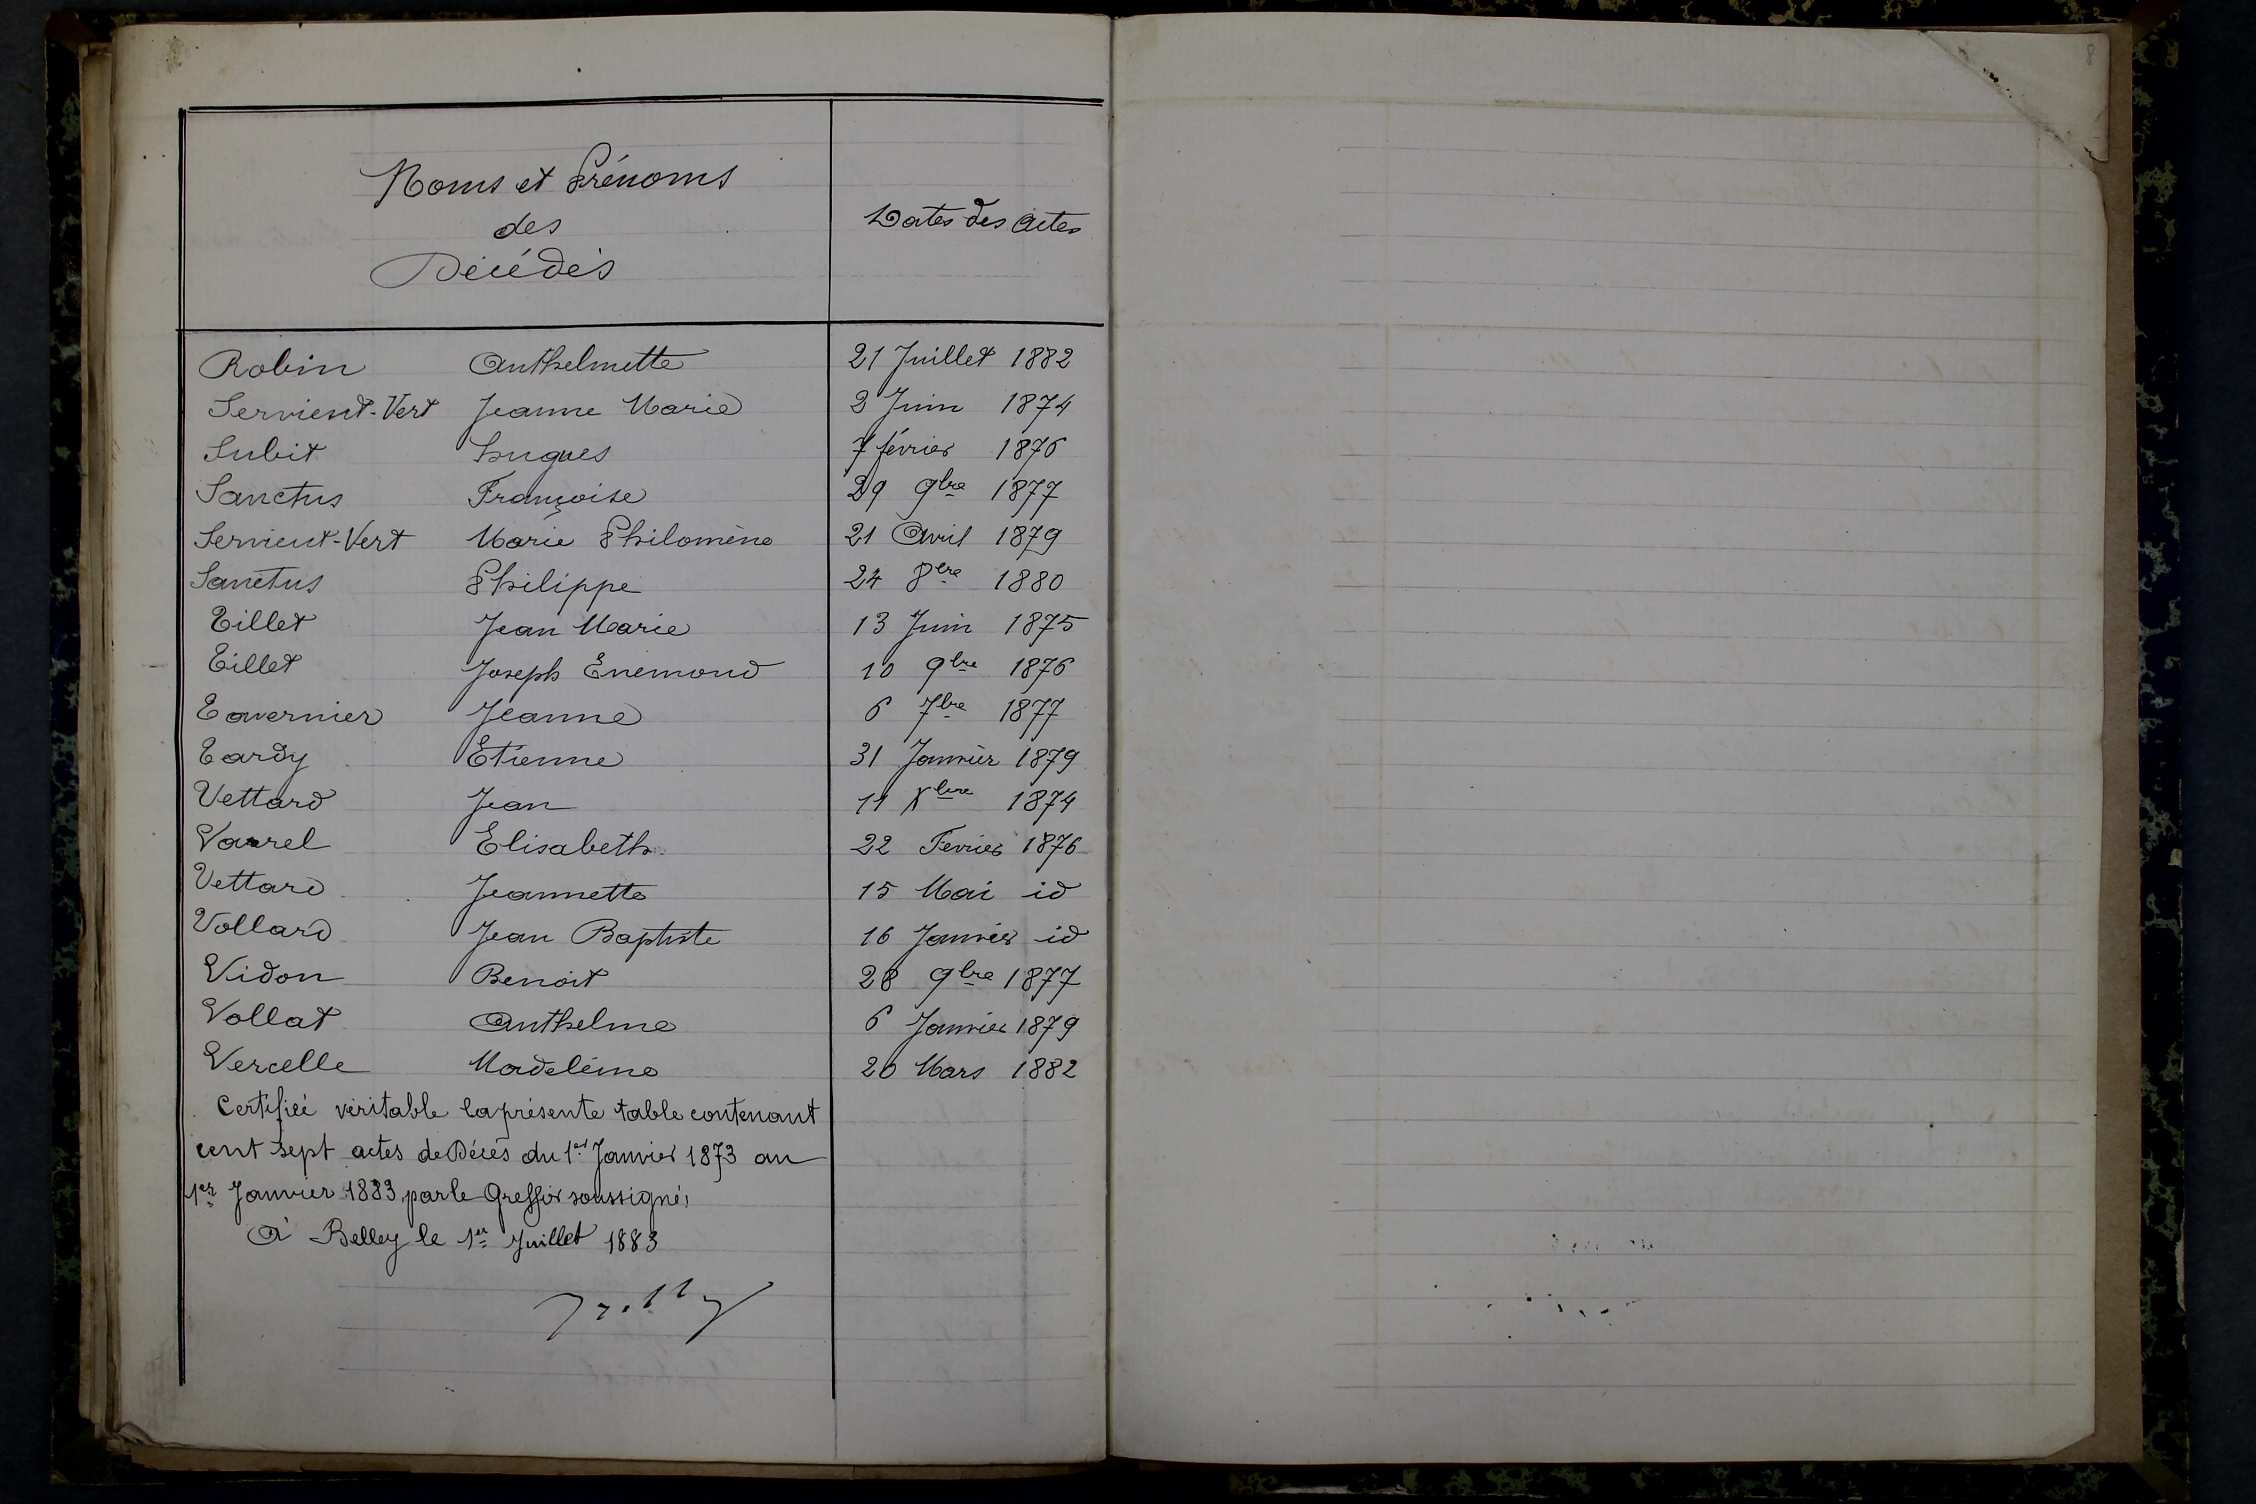 Noms et Prénoms
des
Décédés
Dates des actes
Robin Anthelmette 21 Juillet 1882
Servient-Vert Jeanne Marie 3 Juin 1874
Subit hugues 7 février 1876
Sanctus Françoise 29 9bre 1877
Servient-Vert Marie Philomène 21 Avril 1879
Sanctus Philippe 24 8bre 1880
Tillet Jean Marie 13 Juin 1875
Tillet Joseph Enemond 10 9bre 1876
Tavernier Jeanne 6 7bre 1877
Tardy Etienne 31 Janvier 1879
Vettard Jean 11 Xbre 1874
Varrel Elisabeth 22 Fevrier 1876
Vettard Jeannette 15 Mai id
Vollard Jean Baptiste 16 Janvier id
Vidon Benoit 28 9bre 1877
Vollat Anthelme 6 Janvier 1879
Vercelle Madeleine 20 Mars 1882
Certifiée véritable la présente table contenant
cent sept actes de Décès du 1er Janvier 1873 au
1er Janvier 1883 par le Greffier soussigné,
A Belley le 1er Juillet 1883
8